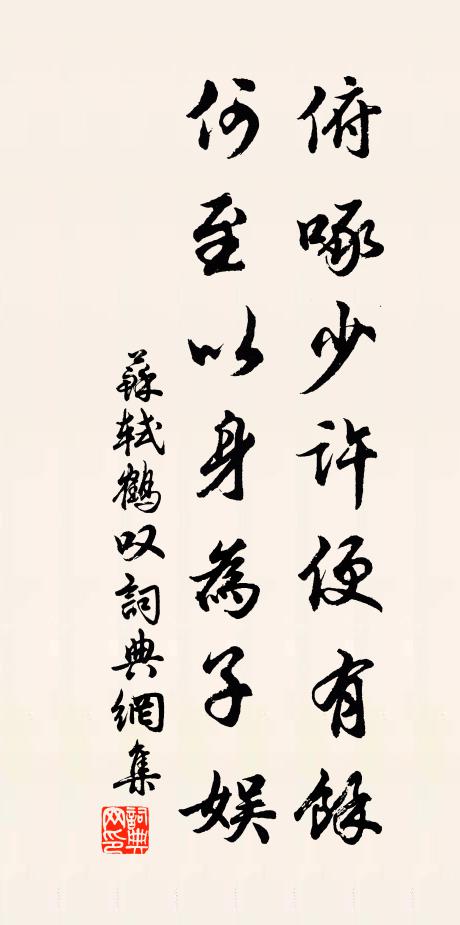 俯啄少許便有餘
何至以身為子娛
蘇軾鶴叹詞典網集